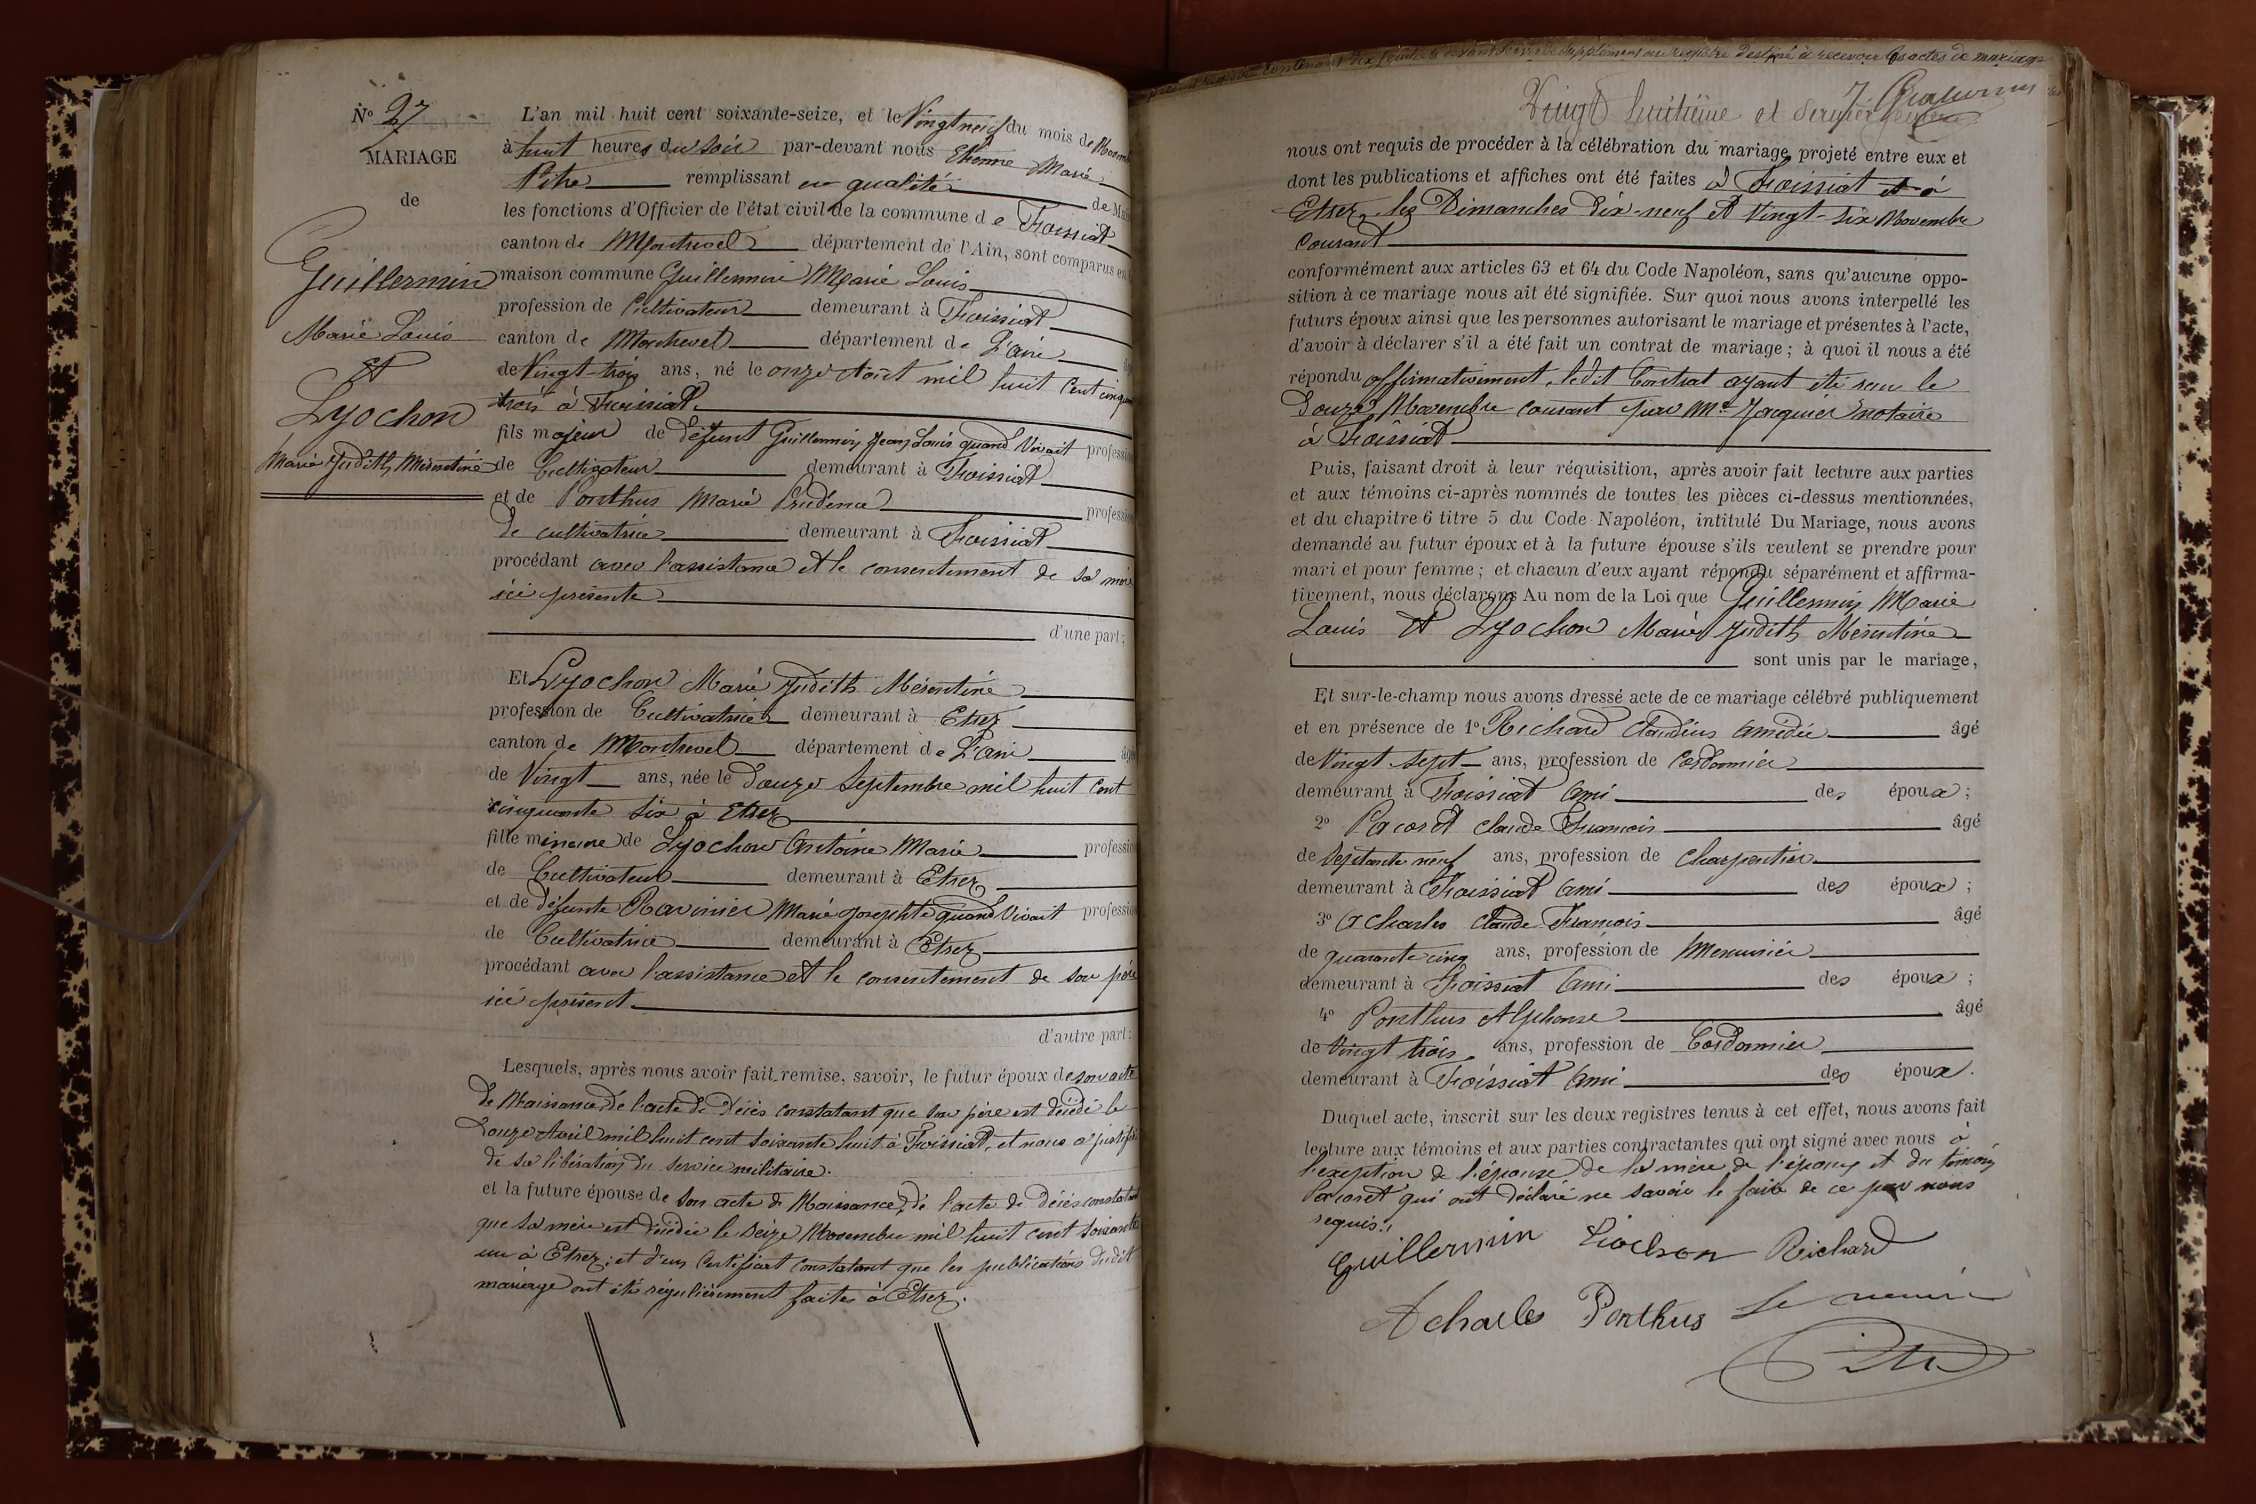 N° 27
MARIAGE
de
Guillermin
Marie Louis
et
Lyochon
Marie Judith Mésentine
L'an mil huit cent soixante-seize, et le Vingt neuf du mois de Novem
à huit heures du soir par-devant nous Etienne Marie
Pitre remplissant en qualité de Mai
les fonctions d'Officier de l'état civil de la commune de Foissiat
canton de Montrevel département de l'Ain, sont comparus en
maison commune Guillermin Marie Louis
profession de Cultivateur demeurant à Foissiat
canton de Montrevel département de L'ain
de Vingt-trois ans, né le onze Août mil huit cent cinquan
trois à Foissiat
fils majeur de défunt Guillermin Jean Louis quand Vivait profession
de Cultivateur demeurant à Foissiat
et de Ponthus Marie Prudence profession
de cultivatrice demeurant à Foissiat
procédant avec l'assistance et le consentement de sa mère
ici présente
d'une part;
Et Lyochon Marie Judith Mésentine
profession de Cultivatrice demeurant à Etrez
canton de Montrevel département de L'ain âgée
de Vingt ans, née le Douze Septembre mil huit Cent
cinquante six à Etrez
fille mineure de Lyochon Antoine Marie profession
de Cultivateur demeurant à Etrez
et de défunte Ravinier Marie Josephte quand Vivait profession
de Cultivatrice demeurant à Etrez
procédant avec l'assistance et le consentement de son père
ici présent
d'autre part:
Lesquels, après nous avoir fait remise, savoir, le futur époux de son acte
de Naissance, de l'acte de Décès constatant que son père est décédé le
Douze Avril mil huit cent soixante huit à Foissiat, et nous a justifié
de sa libération du service militaire.
et la future épouse de son acte de Naissance, de l'acte de décès constatant
que sa mère est décédée le seize Novembre mil huit cent soixante
un à Etrez; et d'un Certificat constatant que les publications dudit
mariage ont été régulièrement faites à Etrez.
supplément au registre destiné à recevoir les actes de mariage
Vingt huitième et dernier
nous ont requis de procéder à la célébration du mariage projeté entre eux et
dont les publications et affiches ont été faites à Foissiat et à
Etrez, les Dimanches Dix-neuf et Vingt-six Novembre
Courant
conformément aux articles 63 et 64 du Code Napoléon, sans qu'aucune oppo-
sition à ce mariage nous ait été signifiée. Sur quoi nous avons interpellé les
futurs époux ainsi que les personnes autorisant le mariage et présentes à l'acte,
d'avoir à déclarer s'il a été fait un contrat de mariage; à quoi il nous a été
répondu affirmativement, ledit Contrat ayant été reçu le
Douze Novembre courant par Me Jacquier notaire
à Foissiat
Puis, faisant droit à leur réquisition, après avoir fait lecture aux parties
et aux témoins ci-après nommés de toutes les pièces ci-dessus mentionnées,
et du chapitre 6 titre 5 du Code Napoléon, intitulé Du Mariage, nous avons
demandé au futur époux et à la future épouse s'ils veulent se prendre pour
mari et pour femme; et chacun d'eux ayant répondu séparément et affirma-
tivement, nous déclarons Au nom de la Loi que Guillermin Marie
Louis et Lyochon Marie Judith Mésentine
sont unis par le mariage,
Et sur-le-champ nous avons dressé acte de ce mariage célébré publiquement
et en présence de 1° Richard Claudius Amédée âgé
de Vingt-sept ans, profession de Cordonnier
demeurant à Foissiat Ami des époux;
2° Pacoret Claude François âgé
de Septante neuf ans, profession de Charpentier
demeurant à Foissiat Ami des époux;
3° Acharles Claude François âgé
de quarante cinq ans, profession de Menuisier
demeurant à Foissiat Ami des époux;
4° Ponthus Alphonse âgé
de Vingt trois ans, profession de Cordonnier
demeurant à Foissiat Ami des époux.
Duquel acte, inscrit sur les deux registres tenus à cet effet, nous avons fait
lecture aux témoins et aux parties contractantes qui ont signé avec nous à
l'exeption de l'épouse, de la mère de l'époux et du témoin
Pacoret qui ont déclaré ne savoir le faire de ce par nous
requis.
Guillermin Liochon Richard
Acharles Ponthus Le maire
Pitre